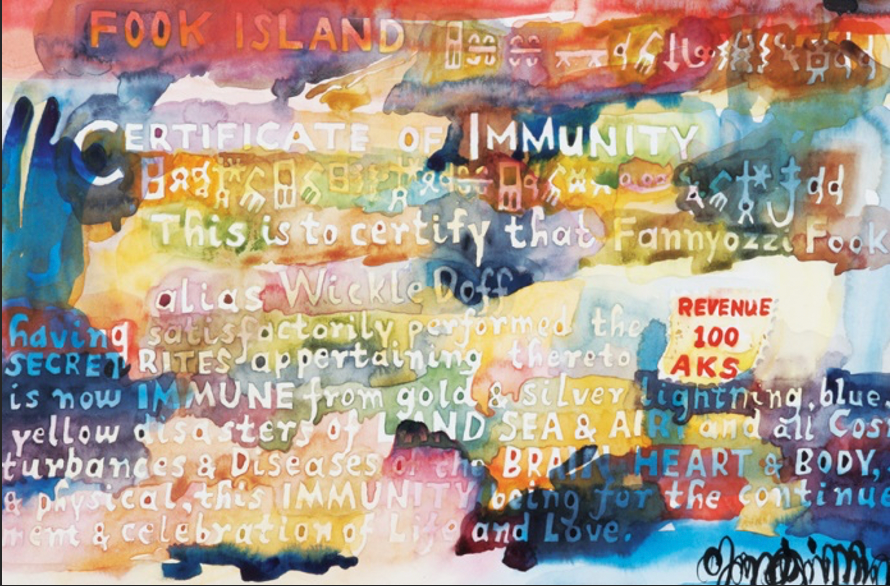 FOOK ISLAND
CERTIFICATE OF IMMUNITY
This is to certify that Fannyozzi Fook
alias Wickle Doff
having satisfactorily performed the
SECRET RITES appertaining thereto
REVENUE
100
AKS
is now IMMUNE from gold & silver lightning, blue,
yellow disasters of LAND SEA & AIR, and all Cos
turbances & Diseases of the BRAIN HEART & BODY,
& physical, this IMMUNITY being for the continue
ment & celebration of Life and Love.